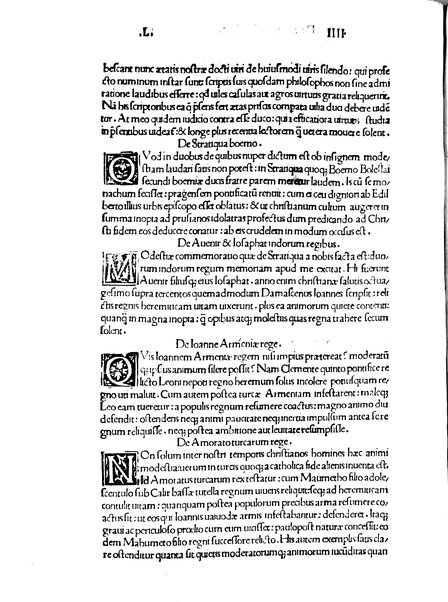 .L. IIII
bescant nunc ætatis nostræ docti uiri de huiusmodi uiris silendo: qui profe
cto numinum instar sunt scriptis suis quosdam philosophos non sine admi
ratione laudibus efferre: qđ uiles casulas aut agros uirtutis gratia reliquerint.
Nā his scriptoribus ea q̄ p̄sens fert ætas priscis compata uilia duo debere uidē
tur. At meo quidem iudicio contra esse duco: quia efficatiora uirtutis studia
in p̄sentibus uidea&longe plus recentia lectorem q̄ uetera mouere solent.
De Stratiqua boemo.
QVod in duobus de quibus nuper dictum est ob insignem mode
stiam laudari satis non potest: in Stratiqua quoq; Boemo Bolestai
secundi boemiæ ducis fratre parem meretur laudem. Is cū se mo
nachum gessisset: pragensem pontificatū renuit: cum ei ceu digniori ab Edil
bertho illius urbis episcopo esset oblatus: & ut christianum cultum augeret in
summa inopia ad prusianos idolatras profectus dum predicando ad Chri
sti fidem eos deducere conatur: ab eis crudelem in modum occisus est.
De Auenir & Iosaphat indorum regibus.
MOdestiæ commemoratio quæ de Stratiqua a nobis facta est: duo
rum indorum regum memoriam apud me excitat. Hi fuerunt
Auenir filiusq; eius Iosaphat. anno enim christianæ salutis octua
gesimo supra tercentos quemadmodum Damascenus Ioannes scripsit: reli
ctis regnis heremiticam uitam uixerunt. plus ea animorum quiete contenti:
quanq̄ in magna inopia: q̄ opibus atq; molestiis quas regna trahere secum
solent.
De Ioanne Armeniæ rege.
QVis Ioannem Armeniæ regem nisi impius prætereat? moderatū
q; ipsius animum silere possit? Nam Clemente quinto pontifice re
licto Leoni nepoti regno heremum solus incolere potiusquam re
gno uti maluit. Cum autem postea turcæ Armeniam infestarent: maleq;
Leo eam tueretur: a populis regnum resumere coactus: magno animo diu
defendit: ostendens neq; animi pauitate neq; inertia impulsum antea se re
gnum reliquisse. neq; postea ambitione aut leuitate resumpsisse.
De Amorato turcarum rege.
NOn solum inter nostri temporis christianos homines hæc animi
modestia uerum in turcis quoq; a catholica fide alienis inuenta est.
Id Amoratus turcarum rex testatur: cum Maumetho filio adole
scentulo sub Calir bassæ tutella regnum uiuens reliquitseq; ad heremiticam
contulit uitam: quanquam postea populorum precibus arma resumere co
actus sit: ut eos qui Ioannis uaiuodæ armis infestabantur: defenderet. Itaq;
graui ac periculoso prœlio cum eum uiasset: paulopost naturæ concessit: ea
dem Mahumeto filio regni successore relicto. His autem exemplis saus cla
re ostenditur quanta sit quietis moderatorumq; animorum iucūditas quan